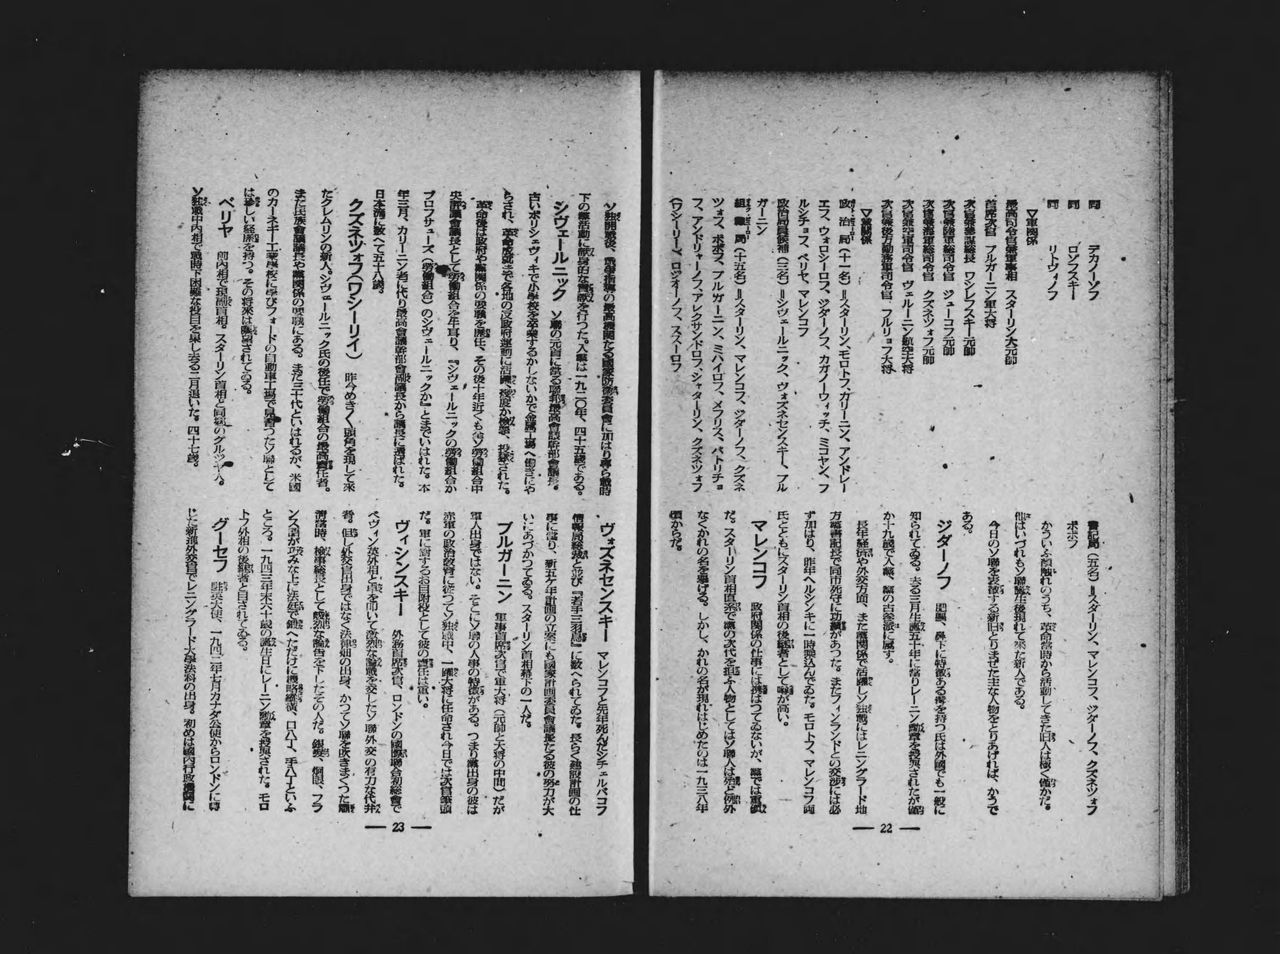 同　　デカノーゾフ
同　　ロゾフスキー
同　　リトヴィノフ
▽軍關係
最高司令官兼軍事相　スターリン大元帥
首席次官　ブルガーニン軍大將
次官兼參謀總長　ワシレフスキー元帥
次官兼陸軍總司令官　ジューコフ元帥
次官兼海軍總司令官　クズネツォフ元帥
次官兼空軍司令官　ヴェルーニン航空大將
次官兼後方勤務軍司令官　フルリョフ大將
▽黨關係
政治局（十一名）＝スターリン、モロトフ、カリーニン、アンドレー
エフ、ウォロシーロフ、ジダーノフ、カガノーウィッチ、ミコヤン、フ
ルシチョフ、ベリヤ、マレンコフ
政治局員候補（三名）＝シヴェールニック、ヴォズネセンスキー、ブル
ガーニン
組織局（十五名）＝スターリン、マレンコフ、ジダーノフ、クズネ
ツォフ、ポポフ、ブルガーニン、ミハイロフ、メフリス、パトリチョ
フ、アンドリャーノフ、アレクサンドロフ、シャターリン、クズネツォフ
（ワシーリー）、ロジオーノフ、ススーロフ
書記局（五名）＝スターリン、マレンコフ、ジダーノフ、クズネツォフ
ポポフ
かういふ顔觸れのうち、革命當時から活動してきた舊人は極く僅かだ。
他はいづれもソ聯誕生後現れて來た新人である。
今日のソ聯を表徴する新舊とりまぜた主な人物をとりあげれば、かうで
ある。
ジダーノフ　肥軀、鼻下に特徴ある髯を持つ氏は外國でも一般に
知られてゐる。去る三月生誕五十年に當りレーニン勳章を授與されたが
か十九歳で入黨、黨の古參派に屬す。
長年經濟や外交方面、また黨關係で活躍しソ獨戰にはレニングラード地
方黨書記長で同市死守に功績があつた。またフィンランドとの交渉には必
ず加はり、昨年ヘルシンキに一時乘込んでゐた。モロトフ、マレンコフ兩
氏とともにスターリン首相の後繼者として噂が高い。
マレンコフ　政府關係の仕事には携はつてゐないが、黨では重鎭
だ。スターリン首相直系で黨の次代を担ふ人物としてはソ聯人は殆ど例外
なくかれの名を擧げる。しかし、かれの名が現れはじめたのは一九三八年
頃からだ。
22
ソ獨開戰後、戰爭指導の最高機關たる國家防衛委員會に加はり專ら戰時
下の黨活動に獻身的な奮鬪を行つた。入黨は一九二〇年、四十五歳である。
シヴェールニック　ソ聯の元首に當る聯邦最高會議幹部會議長。
古いボリシェヴィキで小學校を卒業するかしないかで金屬工場へ働きにや
らされ、革命成就まで各地の反政府運動に活躍、幾度か檢擧、投獄された。
革命後は政府や黨關係の要職を歷任、その後十年近くも全勞働組合中
央評議會議長として勞働組合を牛耳り、『シヴェールニックの勞働組合か
プロフサューズ（勞働組合）のシヴェールニックか』とまでいはれた。本
年三月、カリーニン老に代り最高會議幹部會副議長から議長に選ばれた。
日本流に數へて五十八歳。
クズネツォフ（ワシーリイ）　昨今めきめく頭角を現して來
たクレムリンの新人。シヴェールニック氏の後任で勞働組合の最高責任者。
また民族會議議長や黨關係の要職にある。まだ三十代といはれるが、米國
のカーネギー工業學校に學びフォードの自動車工場で見習つたソ聯として
は珍しい經歷を持つ。その將來は囑望されてゐる。
ベリヤ　前内相で現副首相。スターリン首相と同郷のグルジヤ人。
ソ獨戰中内相で戰時下困難な役目を果し去る二月退いた。四十七歳。
ヴォズネセンスキー　マレンコフと先年死んだシチェルバコフ
情報局總裁と並び『若手三羽烏』に數へられてゐた。長らく建設計畫の仕
事に當り、新五ケ年計畫の立案にも國家計畫委員會議長たる彼の努力が大
いにあづかつてゐる。スターリン首相幕下の一人だ。
ブルガーニン　軍事首席次官で軍大將（元帥と大將の中間）だが
軍人出身ではない。そこにソ聯の人事の特徴がある。つまり黨出身の彼は
赤軍の政治教育に從つてソ獨戰中、一躍大將に任命され今日では次官筆頭
だ。軍に對するお目附役として彼の責任は重い。
ヴィシンスキー　外務首席次官、ロンドンの國際聯合初總會で
ベヴィン英外相と卓を叩いて激烈な論戰を交したソ聯外交の有力な代辯
者。但し外交官出身ではなく法律畑の出身。かつてソ聯を吹きまくつた肅
清當時、檢事總長として峻烈な論告を下したその人だ。銀髮、慣眼、フラ
ンス語が巧みな上に法廷で鍛へただけに機略縱横、口八丁、手八丁といふ
ところ。一九四三年末六十歳の誕生日にレーニン勳章を授與された。モロ
トフ外相の後繼者と目されてゐる。
グーセフ　駐英大使、一九四二年七月カナダ公使からロンドンに轉
じた新進外交官でレニングラード大學法科の出身。初めは國內行政機關に
23